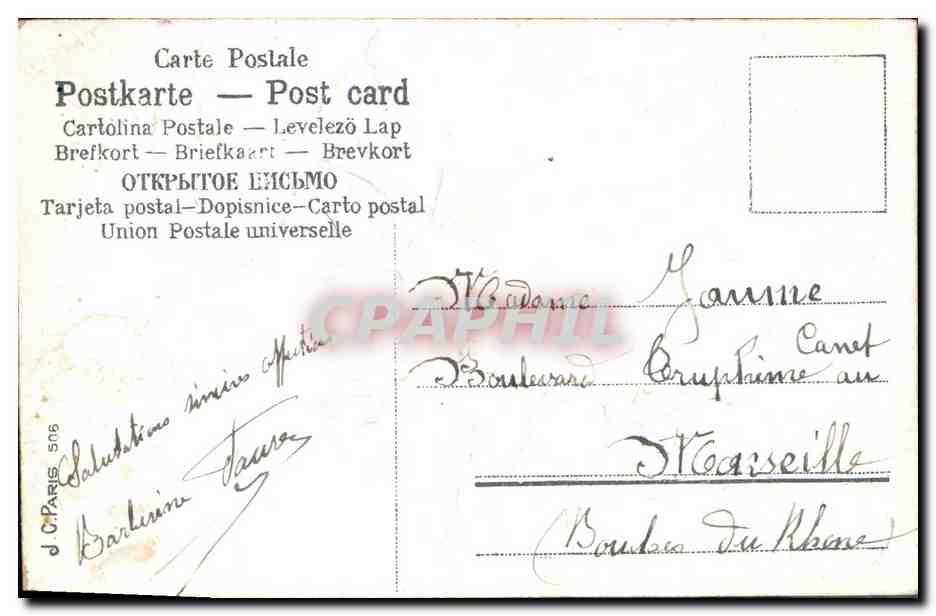 Carte Postale
Postkarte — Post card
Cartolina Postale — Levelezö Lap
Brefkort — Briefkaart — Brevkort
ОТКРЫТОЕ ПИСЬМО
Tarjeta postal—Dopisnice—Carto postal
Union Postale universelle
CPAPHIL
Madame Jaume
Boulevard Truphème au
Canet
Marseille
(Bouches du Rhone)
Salutations
Barberine Faure
J. C. PARIS 506